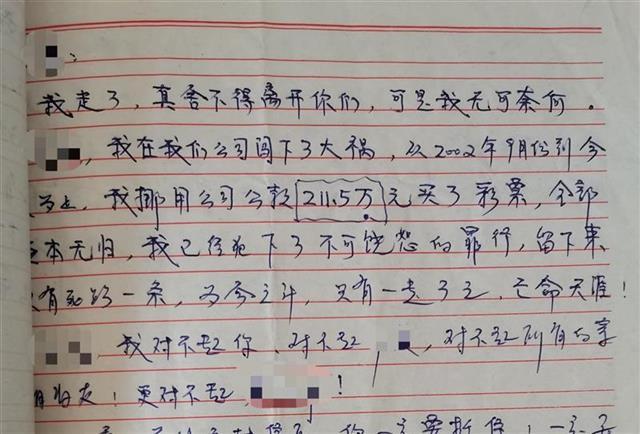 ：
我走了，真舍不得离开你们，可是我无可奈何。
，我在我们公司闯下了大祸，从2002年9月份到今
为止，我挪用公司公款211.5万元买了彩票，全部
本无归，我已经犯下了不可饶恕的罪行，留下来
有死路一条，为今之计，只有一走了之，亡命天涯！
，我对不起你，对不起，对不起所有的亲
朋好友！更对不起！